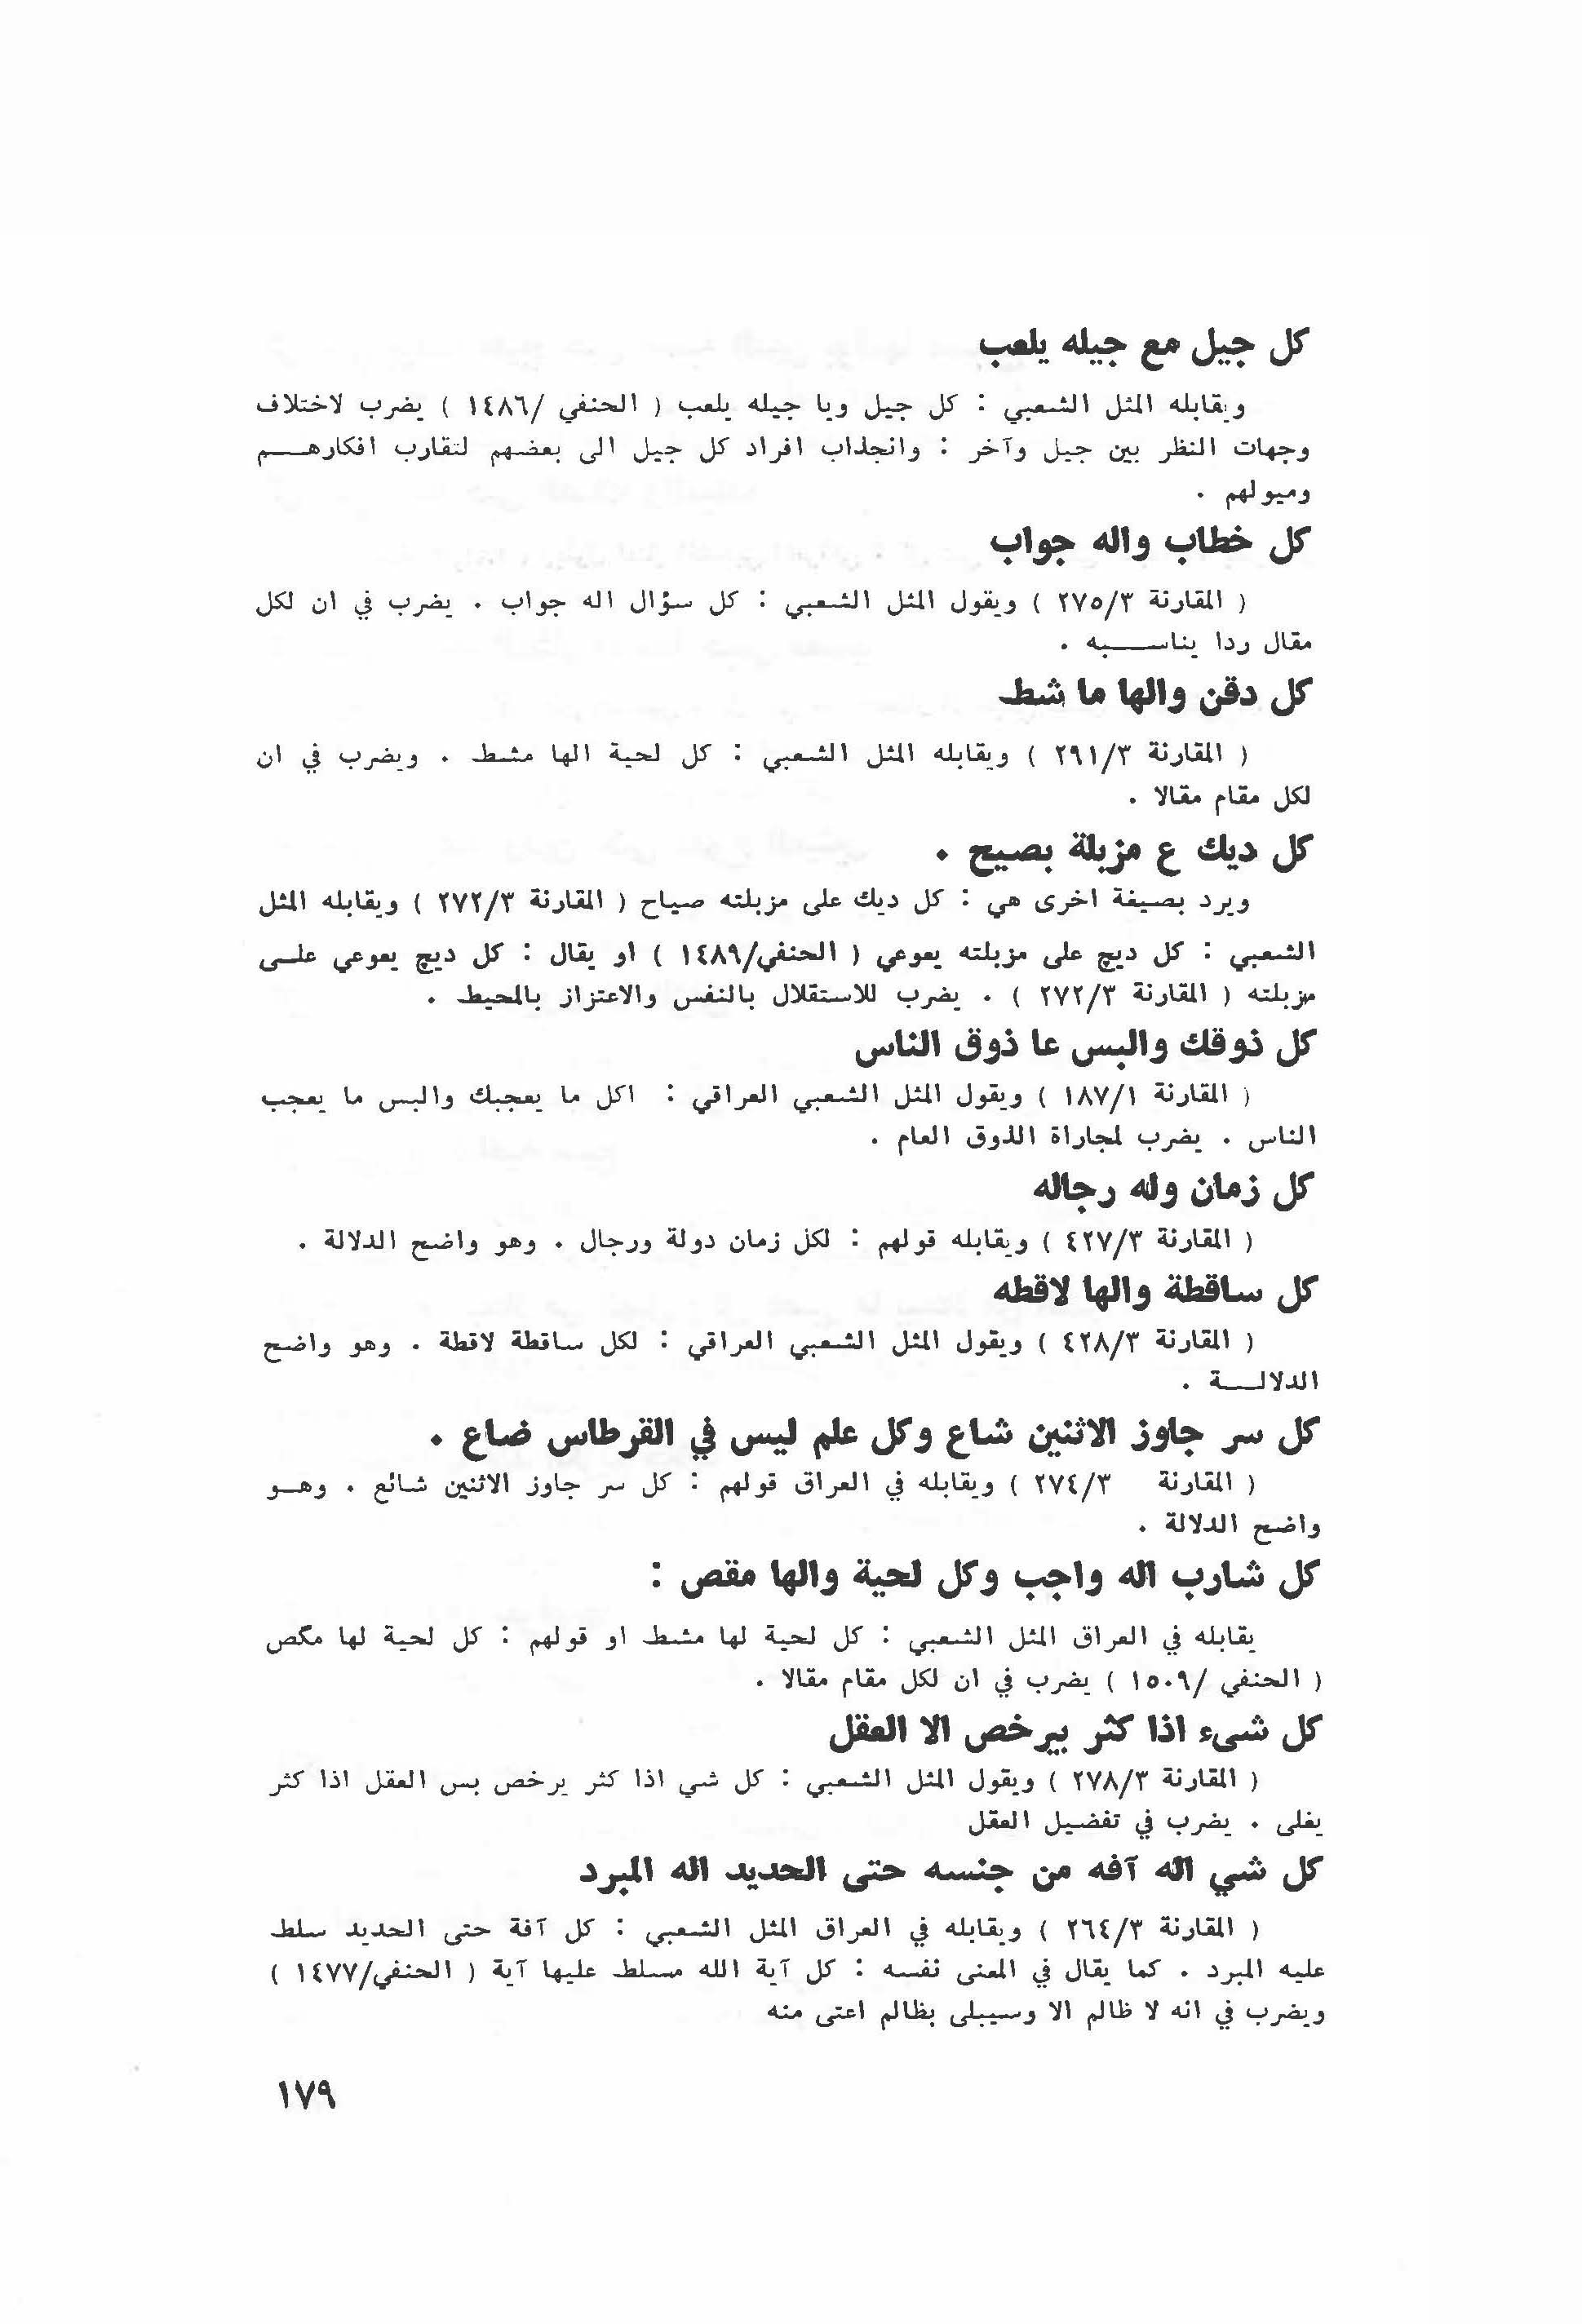 كل جيل مع جيله يلعب
ويقابله المثل الشعبي : كل جيل ويا جيله يلعب ( الحنفي /١٤٨٦ ) يضرب لاختلاف
وجهات النظر بين جيل وآخر : وانجذاب افراد كل جيل الى بعضهم لتقارب افكارهـــم
وميولهم .
كل خطاب واله جواب
( المقارنة ٢٧٥/٣ ) ويقول المثل الشعبي : كل سؤال اله جواب . يضرب في ان لكل
مقال ردا يناســـبه .
كل دقن والها ما شط
( المقارنة ٢٩١/٣ ) ويقابله المثل الشعبي : كل لحية الها مشط . ويضرب في ان
لكل مقام مقالا .
كل ديك ع مزبلة بصيح .
ويرد بصيغة اخرى هي : كل ديك على مزبلته صياح ( المقارنة ٢٧٢/٣ ) ويقابله المثل
الشعبي : كل ديچ على مزبلته يعوعي ( الحنفي/١٤٨٩ ) او يقال : كل ديچ يعوعي علـى
مزبلته ( المقارنة ٢٧٢/٣ ) . يضرب للاستقلال بالنفس والاعتزاز بالمحيط .
كل ذوقك والبس عا ذوق الناس
( المقارنة ١٨٧/١ ) ويقول المثل الشعبي العراقي : اكل ما يعجبك والبس ما يعجب
الناس . يضرب لمجاراة الذوق العام .
كل زمان وله رجاله
( المقارنة ٤٢٧/٣ ) ويقابله قولهم : لكل زمان دولة ورجال . وهو واضح الدلالة .
كل ساقطة والها لاقطه
( المقارنة ٤٢٨/٣ ) ويقول المثل الشعبي العراقي : لكل ساقطة لاقطة . وهو واضح
الدلالـــة .
كل سر جاوز الاثنين شاع وكل علم ليس في القرطاس ضاع .
( المقارنة ٢٧٤/٣ ) ويقابله في العراق قولهم : كل سر جاوز الاثنين شائع . وهـو
واضح الدلالة .
كل شارب اله واجب وكل لحية والها مقص :
يقابله في العراق المثل الشعبي : كل لحية لها مشط او قولهم : كل لحية لها مگص
( الحنفي /١٥٠٩ ) يضرب في ان لكل مقام مقالا .
كل شىء اذا كثر بيرخص الا العقل
( المقارنة ٢٧٨/٣ ) ويقول المثل الشعبي : كل شي اذا كثر يرخص بس العقل اذا كثر
يغلى . يضرب في تفضيل العقل
كل شي اله آفه من جنسه حتى الحديد اله المبرد
( المقارنة ٢٦٤/٣ ) ويقابله في العراق المثل الشعبي : كل آفة حتى الحديد سلط
عليه المبرد . كما يقال في المعنى نفسه : كل آية الله مسلط عليها آية ( الحنفي/١٤٧٧ )
ويضرب في انه لا ظالم الا وسيبلى بظالم اعتى منه
١٧٩